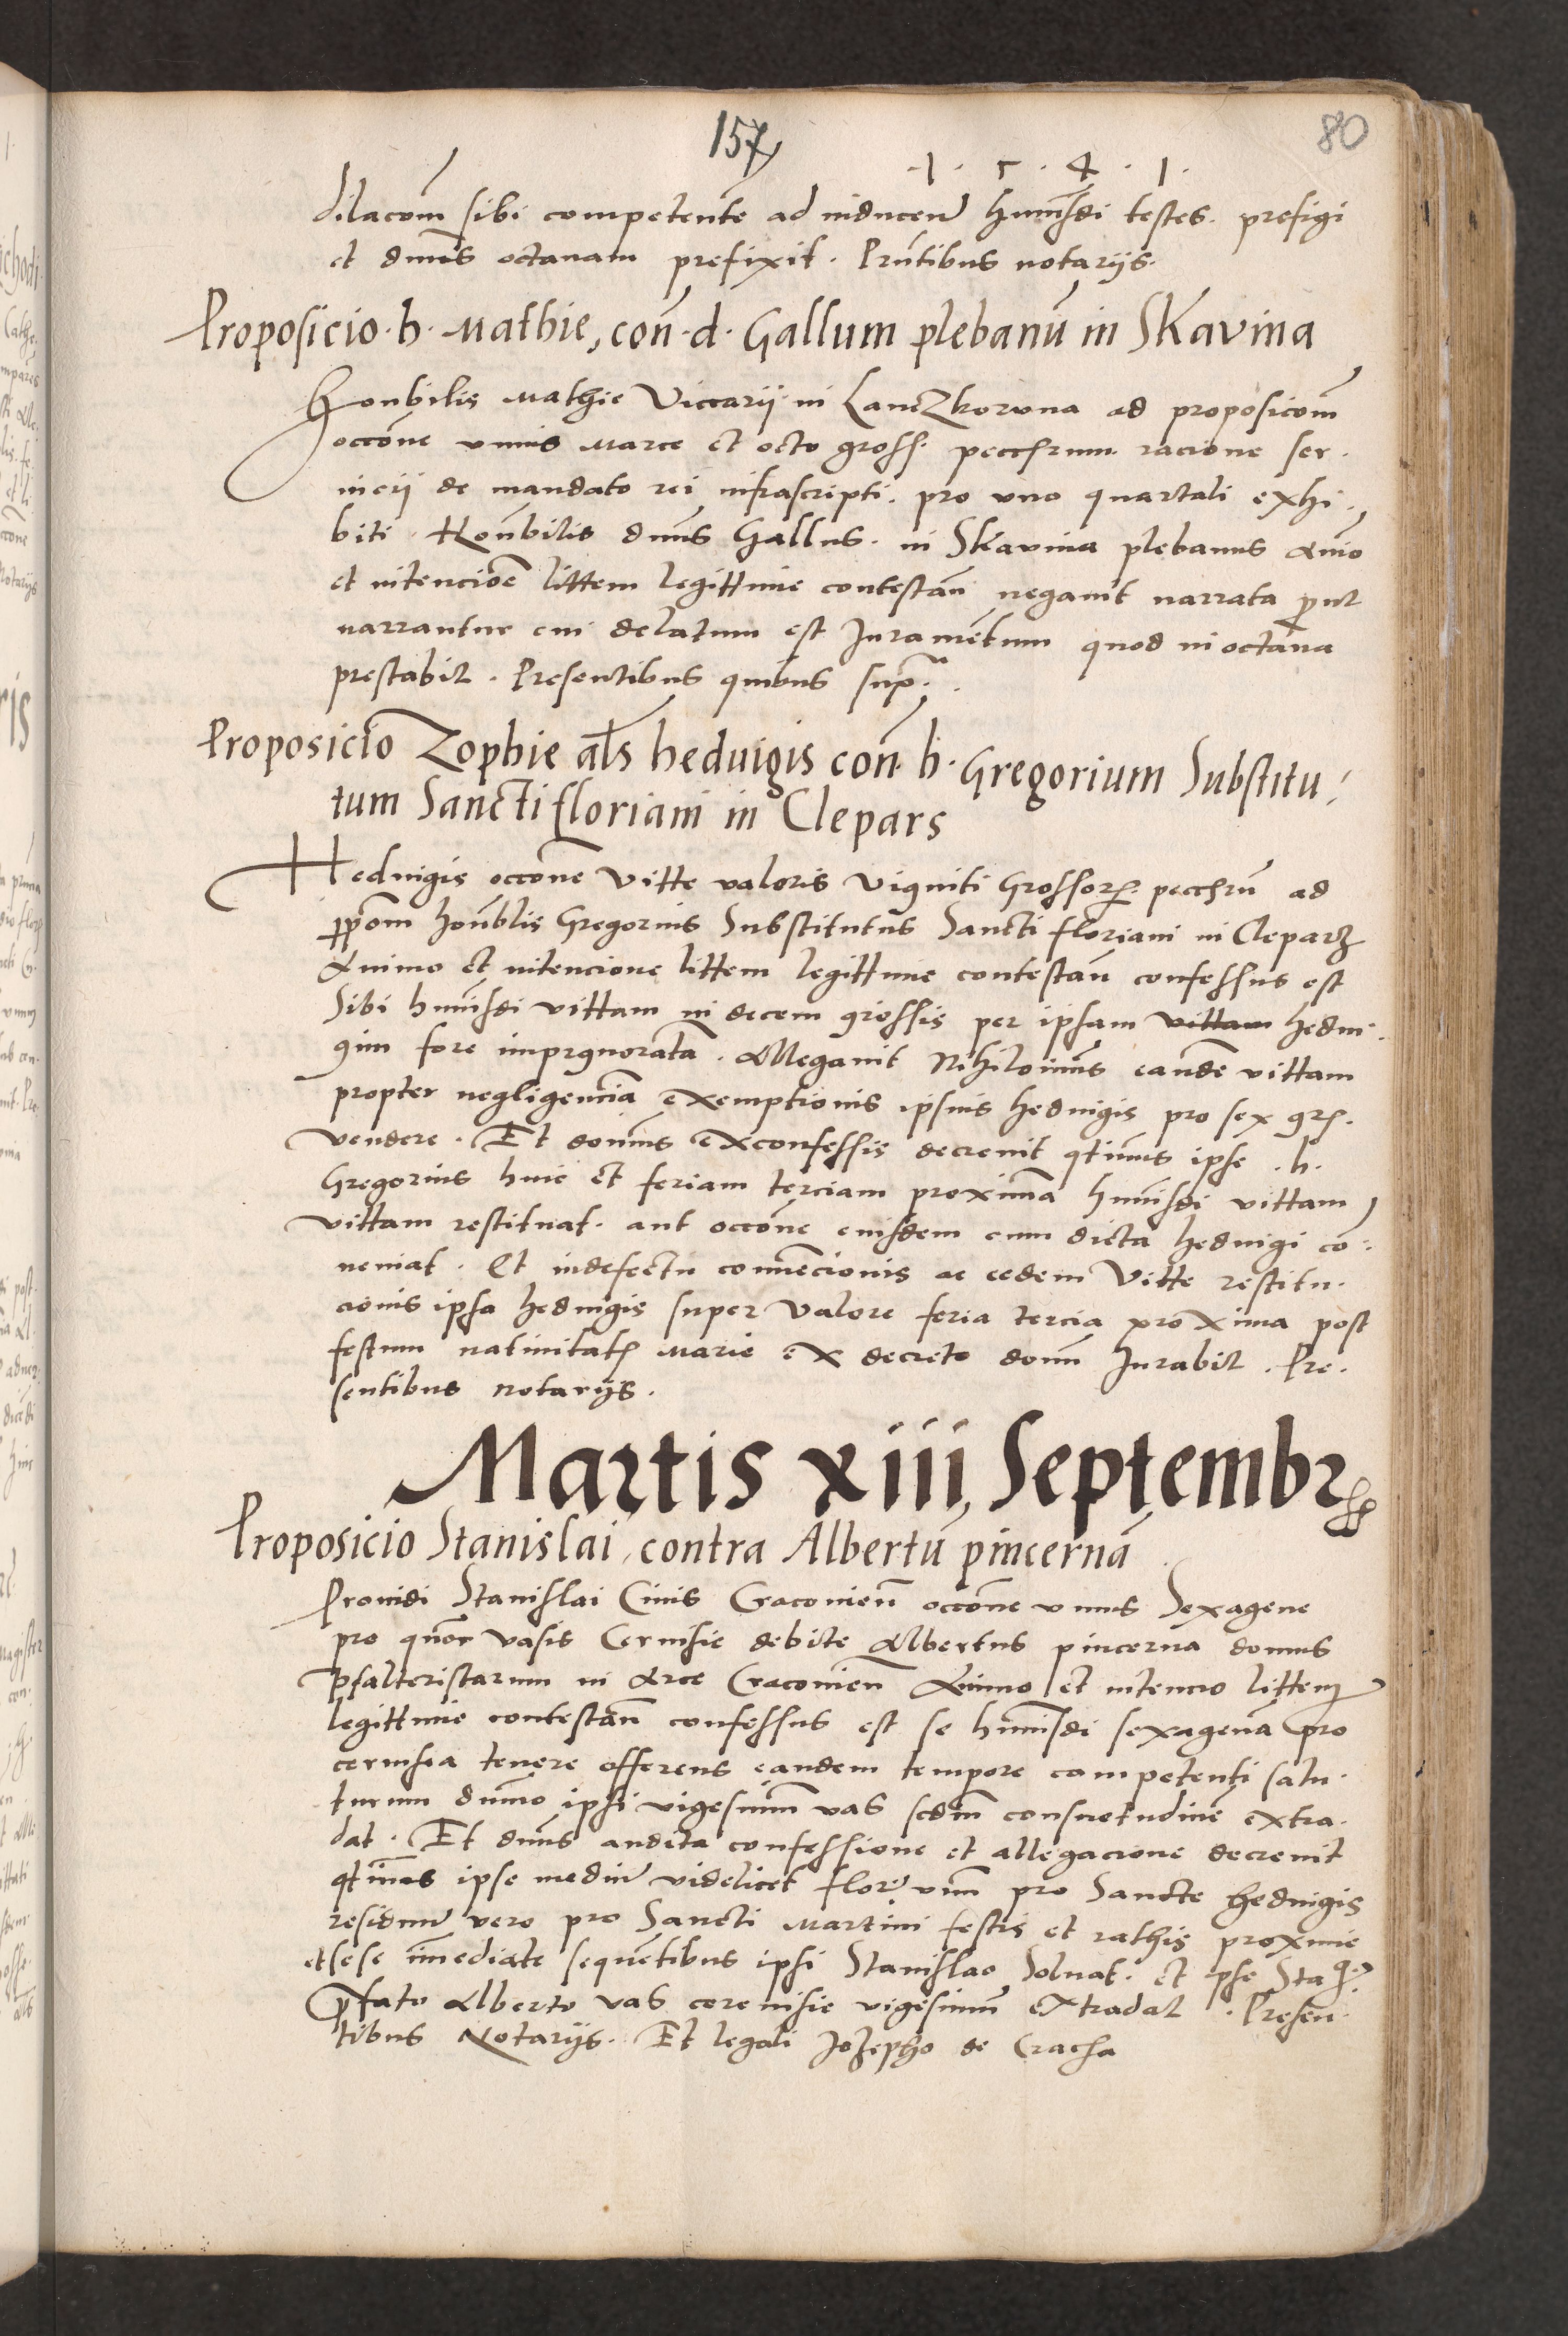 157
80
1 . 5 . 4 . 1 .
dilacom sibi competente ad inducen humsdi testes. prefigi
et dnus octavam prefixit. Prntibus notarijs.
Proposicio. h. Mathie, con. d. Gallum plebanu in Skavina
Honbilis Mathie Viccarij in LanczKorona ad proposicom
occone unius Marce et octo gross. pecchrum. racione ser.
vicij de mandato rei infrascripti. pro uno quartali exhi.
biti. Honbilis dnus Gallus. in Skavina plebanus Animo
et intencioe littem legittime contestan negavit narrata prout
narrantur cui delatum est Juramentum quod in octava
prestabit. Presentibus quibus supra.
Proposicio Zophie als heduigis con. h. Gregorium Substitu/
tum Sancti floriani in Clepars
Heduigis occone Vitte valoris Viginti Grossorum pecchru ad
ppom honbilis Gregorius Substitutus Sancti floriani in Cleparz
Animo et intencione littem legittime contestan confessus est
Sibi humsdi vittam in decem grossis per ipsam vittam hedui.
gim fore impignorata. Allegavit Nihilominus eande vittam
propter negligencia exemptionis ipsius heduigis pro sex grs.
vendere. Et dominus exconfessis decrevit qtinus ipse .h.
Gregorius huic et feriam terciam proxima humsdi vittam
vittam restituat. aut occone eiusdem cum dicta heduigi co:
veniat. Et indefectu convencionis ac eedem Vitte restitu.
cionis ipsa heduigis super Valore feria tercia proxima post
festum nativitatis Marie ex decreto domini Jurabit. Pre.
sentibus notarijs.
Martis xiii, Septembr
Proposicio Stanislai, contra Albertu pincerna
Providi Stanislai Civis Cracovien occone unius Sexagene
pro quor vasis Cervisie debite Albertus pincerna domus
Psalteristarum in Arce Cracovien Animo et intencio littem
legittime contestan confessus est se humsdi sexagena pro
cervisia tenere offerens eandem tempore competenti solu.
turum dummo ipsi vigesimum vas scdm consuetudine extra.
dat. Et dnus audita confessione et allegacione decrevit
qtinus ipse mediu videlicet flore unu pro Sancte Heduigis
residuu vero pro Sancti Martini festis et rathis proxime
et sese immediate sequentibus ipsi Stanislao Solvat. et ipse Sta
pfato Alberto vas cerevisie vigesimum extradat. Presen.
tibus Notarijs. Et legali Jozepho de Cracha